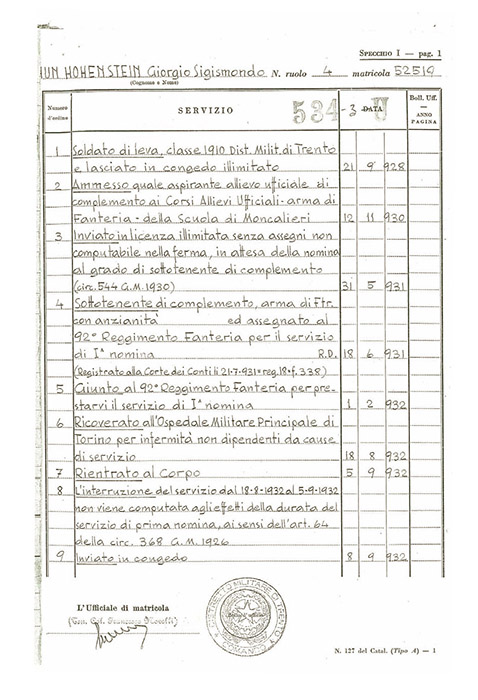 SPECCHIO I — pag. 1
HOHENSTEIN Giorgio Sigismondo N. ruolo 4 matricola 52519
(Cognome e Nome)
Numero d'ordine
SERVIZIO
534 -3 DATA
Boll. Uff. — ANNO PAGINA
1 Soldato di leva, classe 1910 Dist. Milit. di Trento
e lasciato in congedo illimitato 21 9 928
2 Ammesso quale aspirante allievo ufficiale di
complemento ai Corsi Allievi Ufficiali - arma di
Fanteria - della Scuola di Moncalieri 12 11 930
3 Inviato in licenza illimitata senza assegni non
computabile nella ferma, in attesa della nomina
al grado di sottotenente di complemento
(circ. 544 G.M. 1930) 31 5 931
4 Sottotenente di complemento, arma di Ftr.
con anzianità ed assegnato al
92° Reggimento Fanteria per il servizio
di Iª nomina R.D. 18 6 931
(Registrato alla Corte dei Conti li 21-7-931 = reg. 18 - f. 338)
5 Giunto al 92° Reggimento Fanteria per pre-
starvi il servizio di Iª nomina 1 2 932
6 Ricoverato all'Ospedale Militare Principale di
Torino per infermità non dipendenti da cause
di servizio 18 8 932
7 Rientrato al Corpo 5 9 932
8 L'interruzione del servizio dal 18-8-1932 al 5-9-1932
non viene computata agli effetti della durata del
servizio di prima nomina, ai sensi dell'art. 64
della circ. 368 G.M. 1926
9 Inviato in congedo 8 9 932
L'Ufficiale di matricola
DISTRETTO MILITARE DI TRENTO
COMANDO
N. 127 del Catal. (Tipo A) — 1